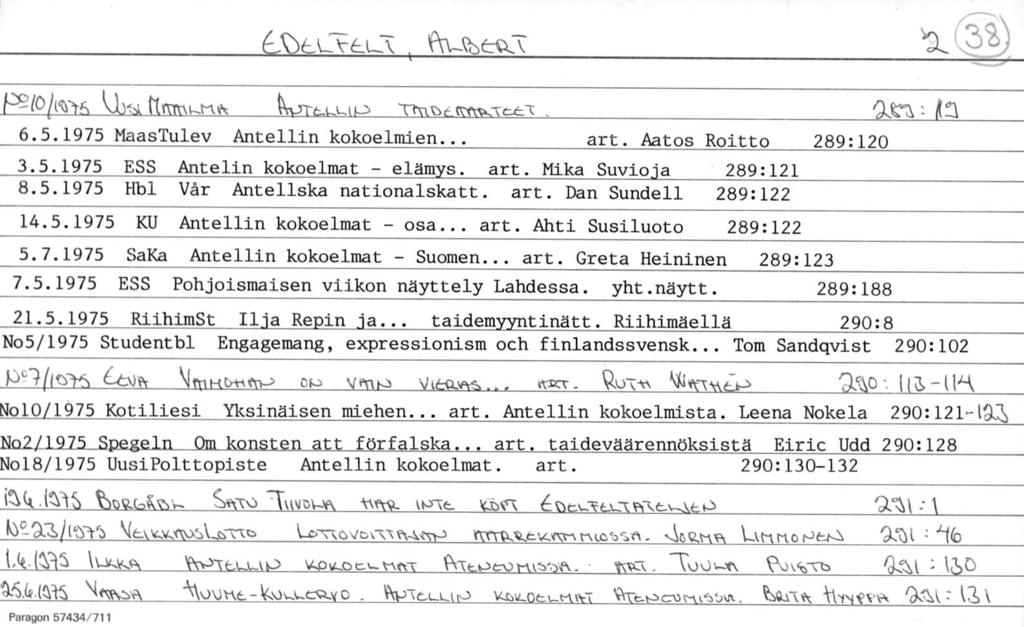 EDELFELT, ALBERT 2 38
No10/1975 Uusi Maailma Antellin taideaarteet. 289:19
6.5.1975 MaasTulev Antellin kokoelmien... art. Aatos Roitto 289:120
3.5.1975 ESS Antelin kokoelmat - elämys. art. Mika Suvioja 289:121
8.5.1975 Hbl Vår Antellska nationalskatt. art. Dan Sundell 289:122
14.5.1975 KU Antellin kokoelmat - osa... art. Ahti Susiluoto 289:122
5.7.1975 SaKa Antellin kokoelmat - Suomen... art. Greta Heininen 289:123
7.5.1975 ESS Pohjoismaisen viikon näyttely Lahdessa. yht.näytt. 289:188
21.5.1975 RiihimSt Ilja Repin ja... taidemyyntinätt. Riihimäellä 290:8
No5/1975 Studentbl Engagemang, expressionism och finlandssvensk... Tom Sandqvist 290:102
No7/1975 Eeva Vaimohan on vain vieras... art. Ruth Wathén 290:113-114
No10/1975 Kotiliesi Yksinäisen miehen... art. Antellin kokoelmista. Leena Nokela 290:121-123
No2/1975 Spegeln Om konsten att förfalska... art. taideväärennöksistä Eiric Udd 290:128
No18/1975 UusiPolttopiste Antellin kokoelmat. art. 290:130-132
19.6.1975 Borgåbl Satu Tiivola har inte köpt Edelfeltateljen 291:1
No23/1975 Veikkauslotto Lottovoittajan aarrekammiossa. Jorma Limmonen 291:46
1.6.1975 Ilkka Antellin kokoelmat Ateneumissa. art. Tuula Puisto 291:130
25.6.1975 Vaasa Huume-Kullervo. Antellin kokoelmat Ateneumissa. Brita Hyyppä 291:131
Paragon 57434/711